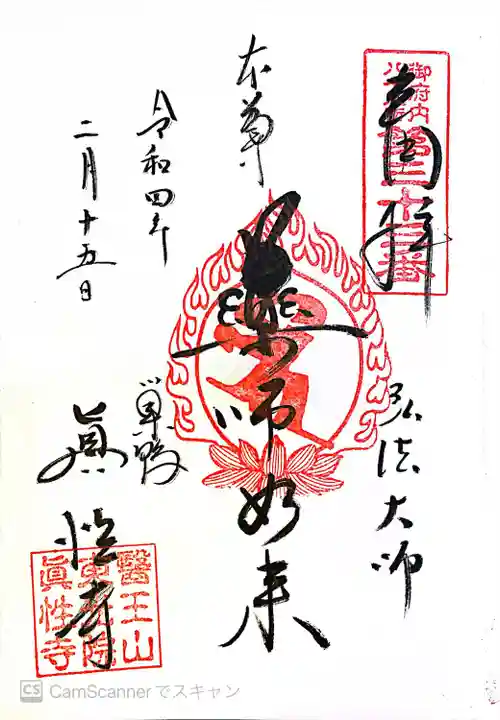 奉拝
御府内
八十八ヶ所
第三十三番
弘法大師
本尊
薬師如来
令和四年
二月十五日
巣鴨
眞性寺
醫王山
東光院
眞性寺
CS CamScannerでスキャン